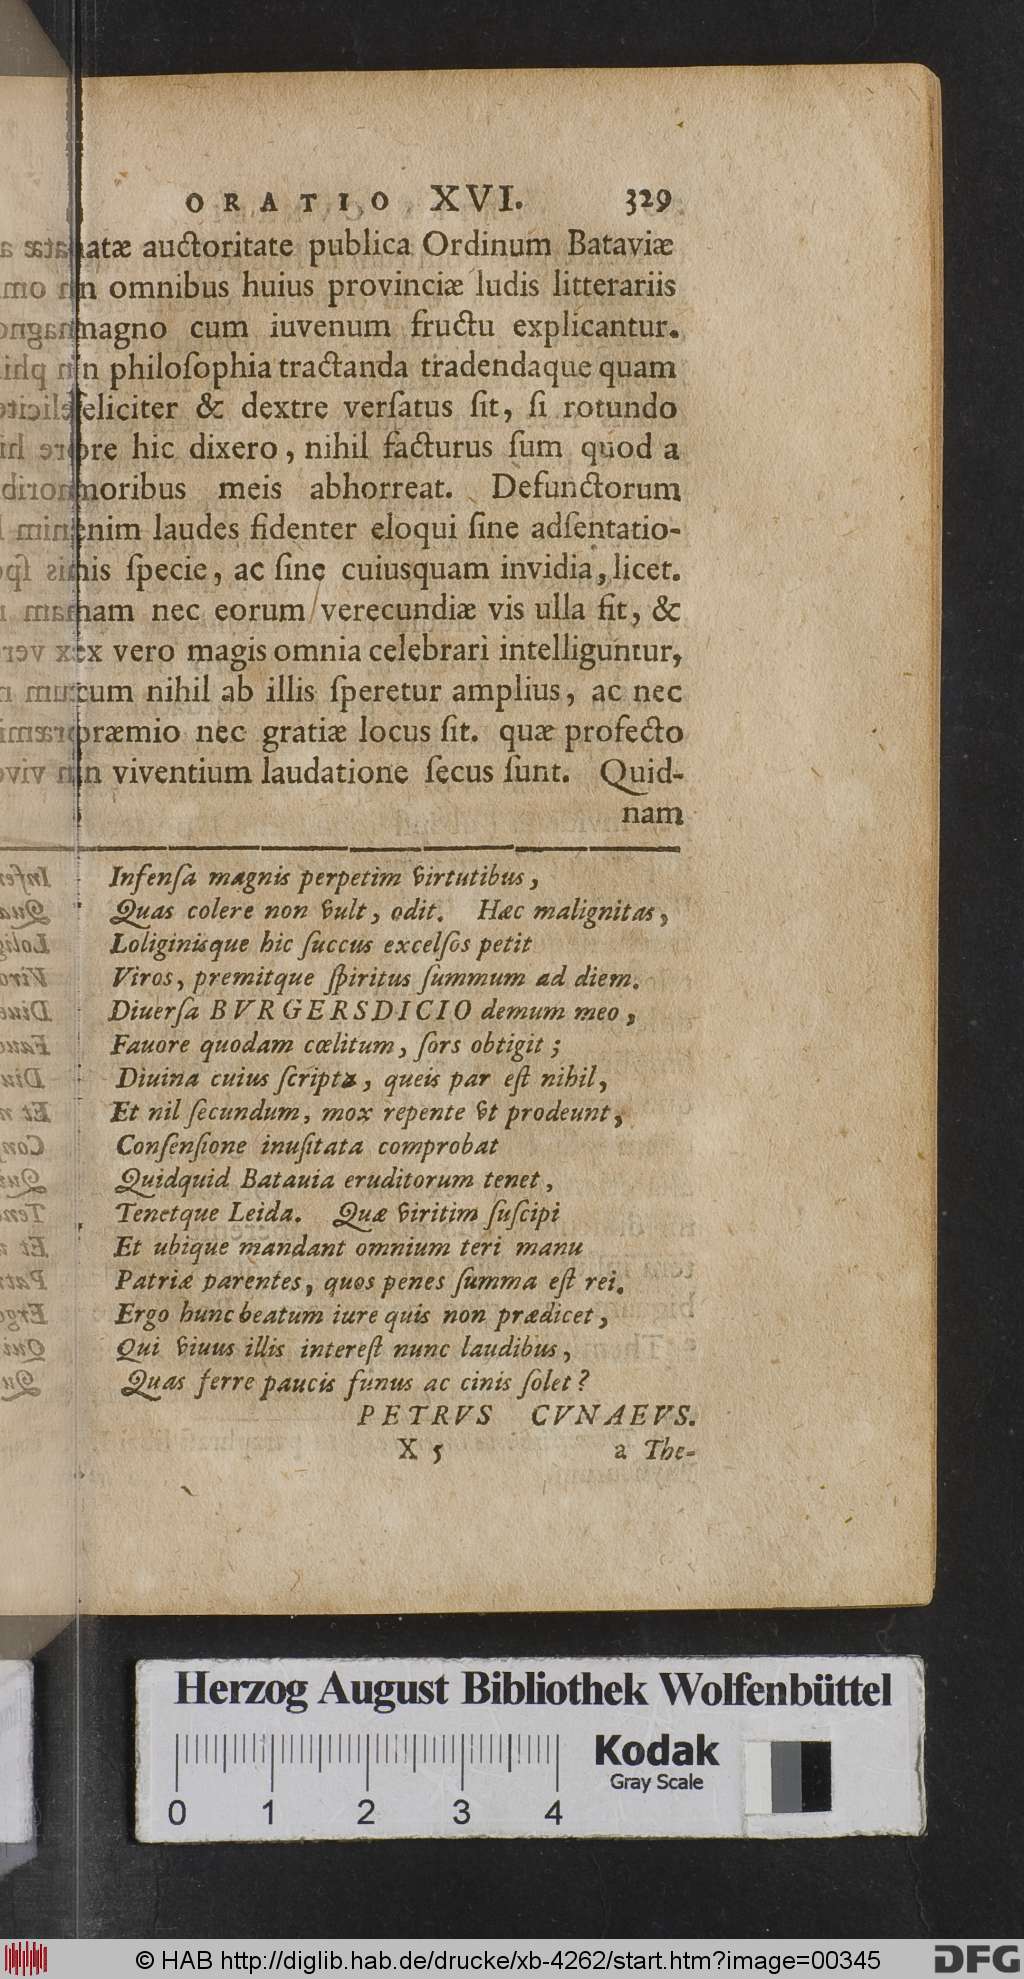 ORATIO XVI. 329
natæ auctoritate publica Ordinum Bataviæ
in omnibus huius provinciæ ludis litterariis
magno cum iuvenum fructu explicantur.
in philoſophia tractanda tradendaque quam
feliciter & dextre verſatus ſit, ſi rotundo
ore hic dixero, nihil facturus ſum quod a
moribus meis abhorreat. Defunctorum
enim laudes fidenter eloqui ſine adſentatio-
nis ſpecie, ac ſine cuiusquam invidia, licet.
nam nec eorum verecundiæ vis ulla fit, &
ex vero magis omnia celebrari intelliguntur,
cum nihil ab illis ſperetur amplius, ac nec
præmio nec gratiæ locus ſit. quæ profecto
in viventium laudatione ſecus ſunt. Quid-
nam
Infenſa magnis perpetim virtutibus,
Quas colere non vult, odit. Hæc malignitas,
Loliginisque hic ſuccus excelſos petit
Viros, premitque ſpiritus ſummum ad diem.
Diuerſa BVRGERSDICIO demum meo,
Fauore quodam cœlitum, ſors obtigit;
Diuina cuius ſcripta, queis par eſt nihil,
Et nil ſecundum, mox repente vt prodeunt,
Conſenſione inuſitata comprobat
Quidquid Batauia eruditorum tenet,
Tenetque Leida. Quæ viritim ſuſcipi
Et ubique mandant omnium teri manu
Patriæ parentes, quos penes ſumma eſt rei.
Ergo hunc beatum iure quis non prædicet,
Qui viuus illis intereſt nunc laudibus,
Quas ferre paucis funus ac cinis ſolet?
PETRVS CVNAEVS.
X 5 a The-
Herzog August Bibliothek Wolfenbüttel
Kodak
Gray Scale
0 1 2 3 4
© HAB http://diglib.hab.de/drucke/xb-4262/start.htm?image=00345
DFG